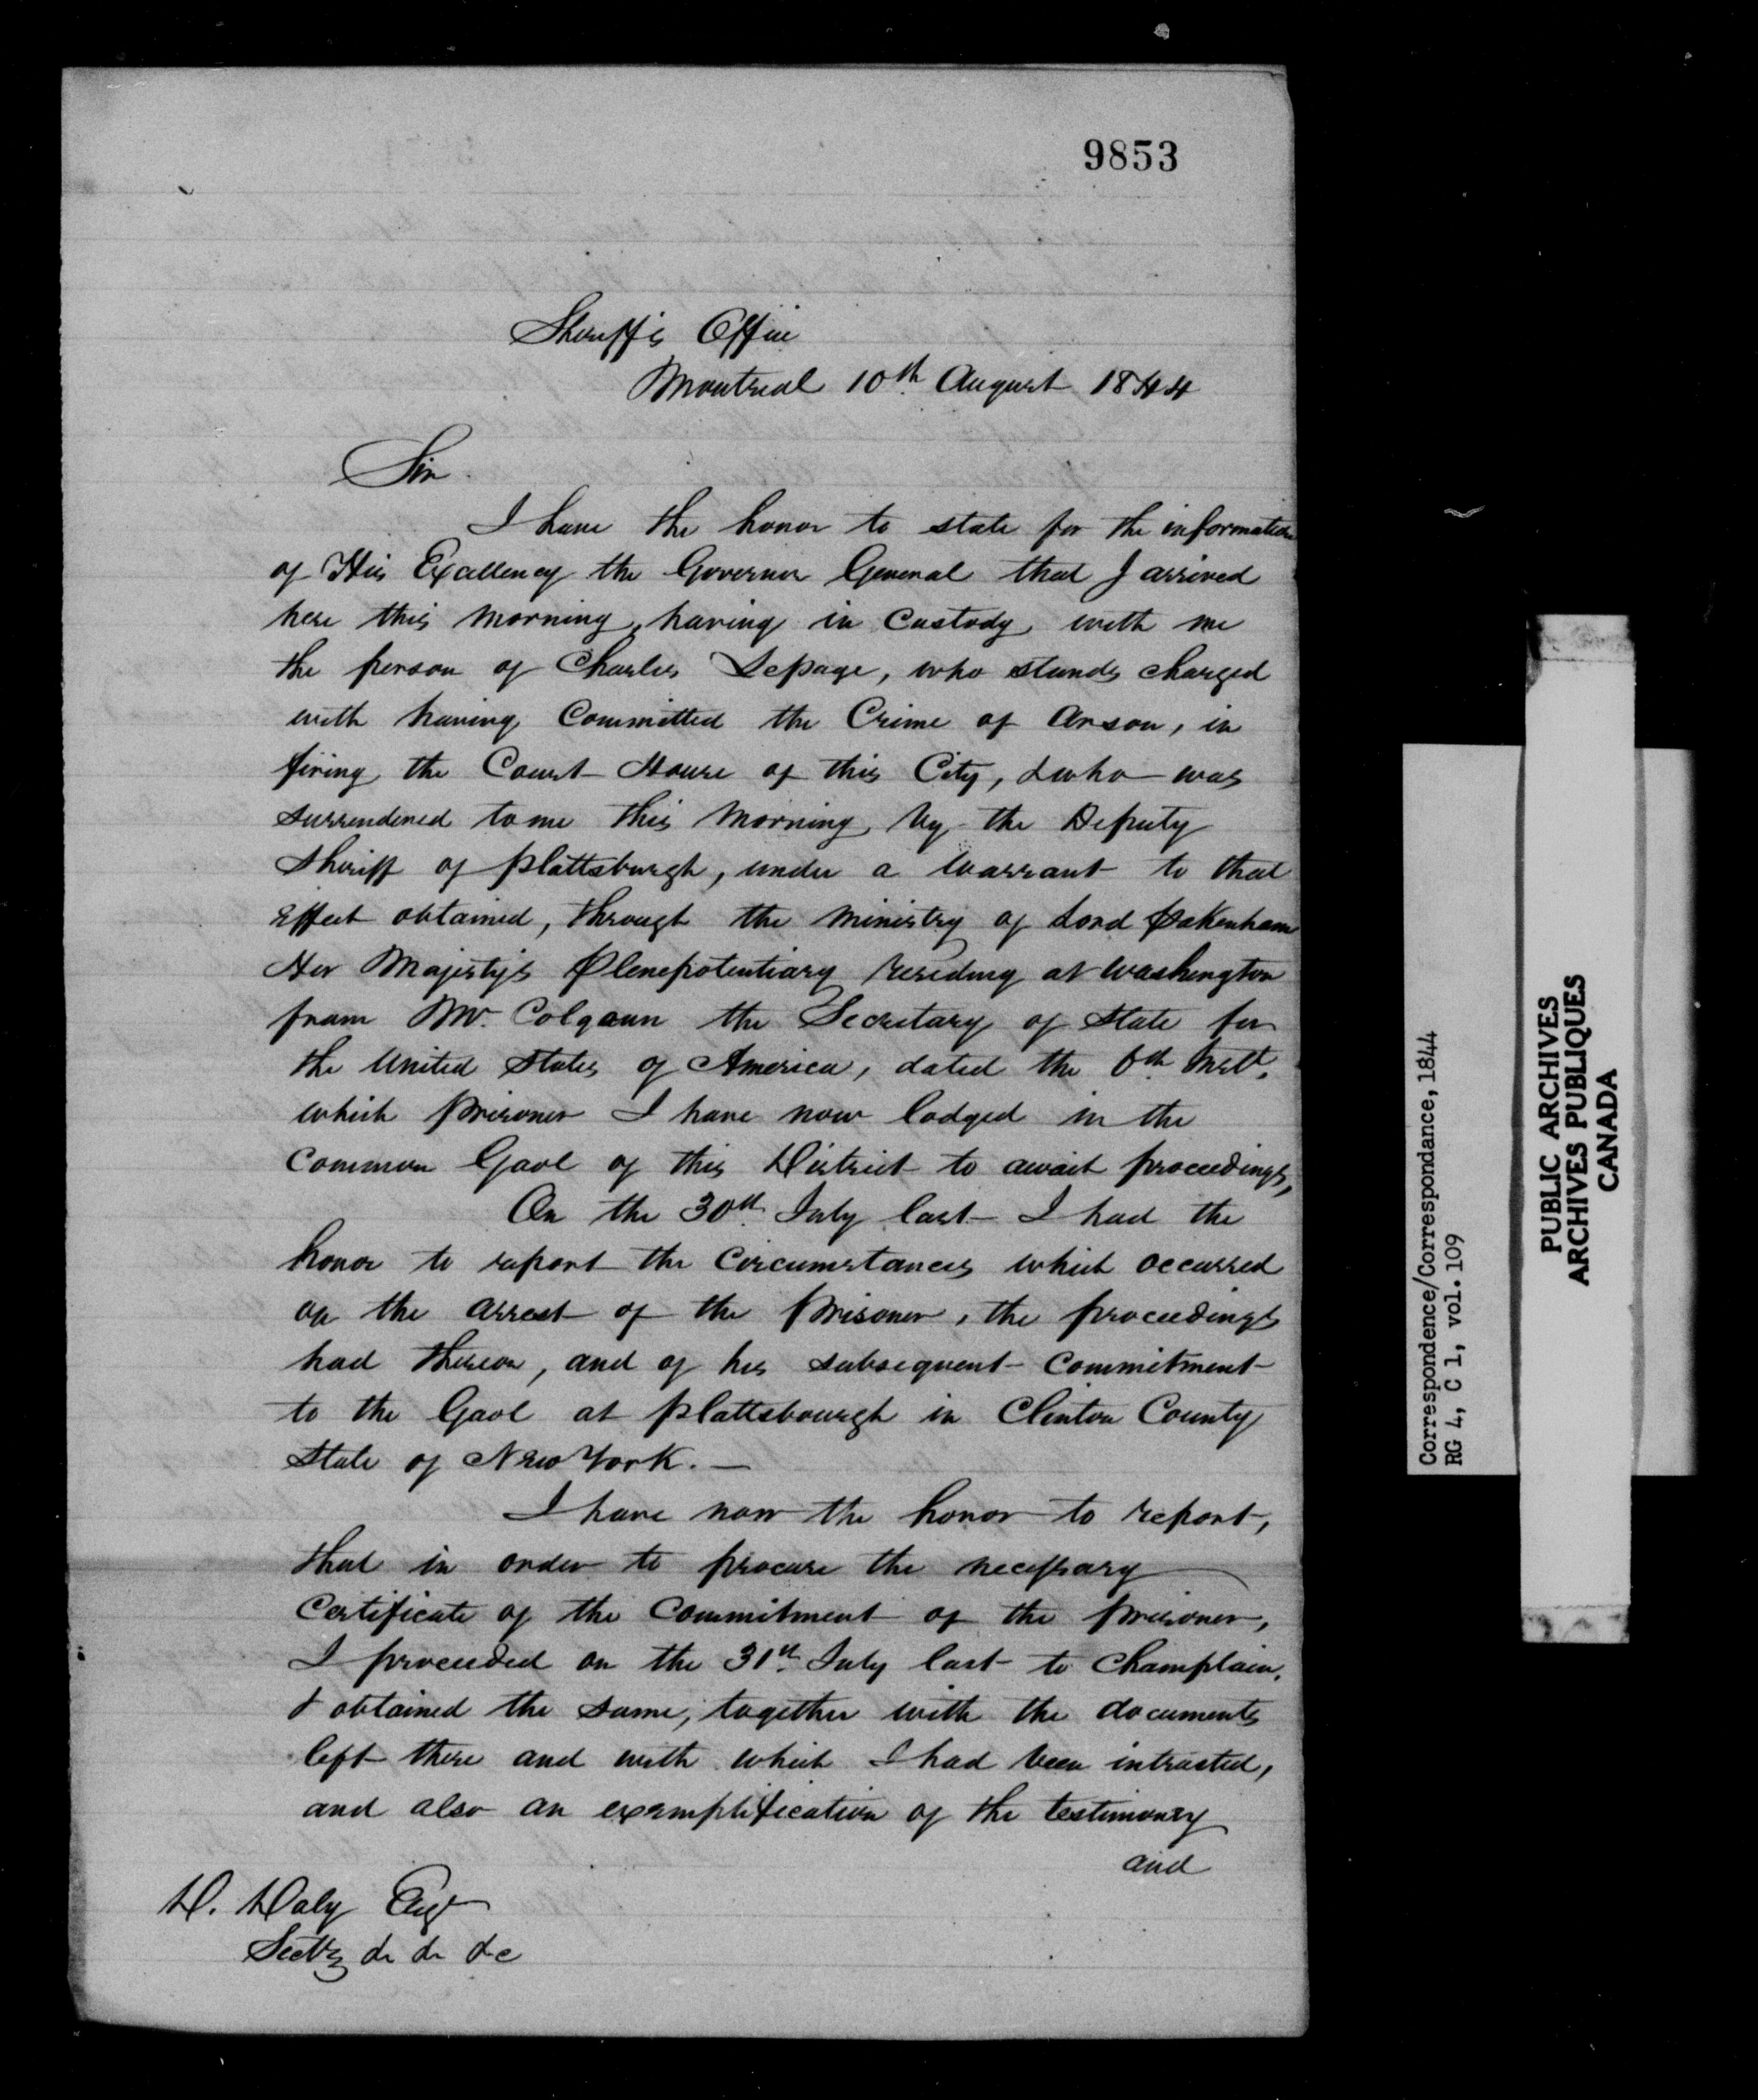 9853
Sheriff's Office
Montreal 10th August 1844
Sir.
I have the honor to state for the information
of His Excellency the Governor General that I arrived
here this morning, having in Custody with me
the person of Charles Lepage, who stands charged
with having Committed the Crime of Arson, in
firing the Court House of this City, & who was
surrendered to me this Morning by the Deputy
Sheriff of plattsburgh, under a Warrant to that
Effect obtained, through the Ministry of Lord Pakenham
Her Majesty's Plenepotentiary residing at Washington
from Mr. Colgoun the Secretary of State for
the United States of America, dated the 6th Inst.
which Prisoner I have now lodged in the
Common Gaol of this District to await proceedings,
On the 30th July last I had the
honor to report the Circumstances which occurred
on the arrest of the Prisoner, the proceedings
had thereon, and of his subsequent Commitment
to the Gaol at plattsbourgh in Clinton County
State of New York. —
I have now the honor to report,
that in order to procure the necessary
Certificate of the Commitment of the prisoner,
I proceeded on the 31st July last to Champlain,
& obtained the same, together with the documents
left there and with which I had been intrusted,
and also an exemplification of the testimony
and
D. Daly Esqr
Secty &c &c &c
Correspondence/Correspondance, 1844
RG 4, C 1, vol. 109
PUBLIC ARCHIVES
ARCHIVES PUBLIQUES
CANADA